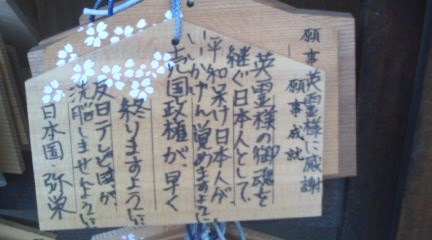 願事 英霊様に感謝
願事成就
英霊様の御魂を
継ぐ日本人として
平和呆け日本人が
いいかげん覚めますように
売国政権が、早く
終りますように
反日テレビ局が、
洗脳しませんように
日本国・弥栄